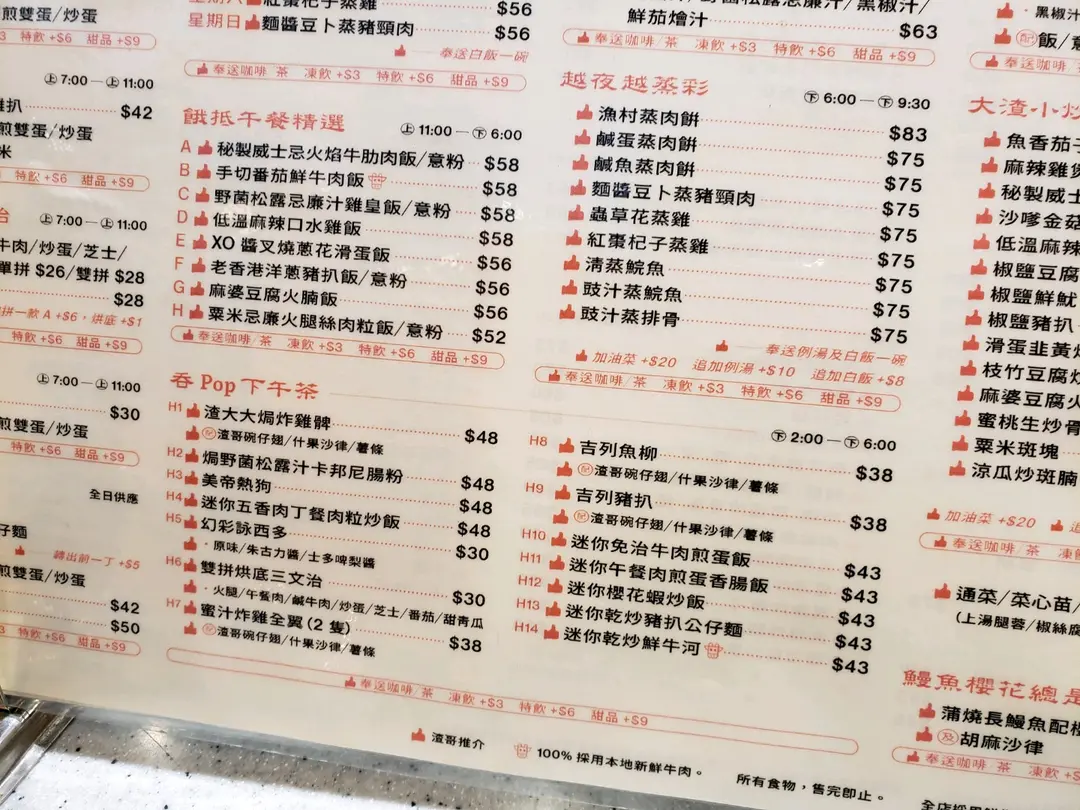 煎雙蛋/炒蛋
特飲 +$6 甜品 +$9
上 7:00 — 上 11:00
$42
煎雙蛋/炒蛋
米
特飲 +$6 甜品 +$9
上 7:00 — 上 11:00
牛肉/炒蛋/芝士/
單拼 $26/雙拼 $28
$28
拼一款 A +$6，烘底 +$1
特飲 +$6 甜品 +$9
上 7:00 — 上 11:00
$30
煎雙蛋/炒蛋
特飲 +$6 甜品 +$9
全日供應
仔麵
轉出前一丁 +$5
煎雙蛋/炒蛋
$42
$50
特飲 +$6 甜品 +$9
紅棗杞子蒸雞 $56
星期日 麵醬豆卜蒸豬頸肉 $56
奉送白飯一碗
奉送咖啡/茶 凍飲 +$3 特飲 +$6 甜品 +$9
餓抵午餐精選 上 11:00 — 下 6:00
A 秘製威士忌火焰牛肋肉飯/意粉 $58
B 手切番茄鮮牛肉飯 $58
C 野菌松露忌廉汁雞皇飯/意粉 $58
D 低溫麻辣口水雞飯 $58
E XO 醬叉燒蔥花滑蛋飯 $56
F 老香港洋蔥豬扒飯/意粉 $56
G 麻婆豆腐火腩飯 $56
H 粟米忌廉火腿絲肉粒飯/意粉 $52
奉送咖啡/茶 凍飲 +$3 特飲 +$6 甜品 +$9
吞 Pop 下午茶
H1 渣大大焗炸雞髀 $48
配 渣哥碗仔翅/什果沙律/薯條
H2 焗野菌松露汁卡邦尼腸粉 $48
H3 美帝熱狗 $48
H4 迷你五香肉丁餐肉粒炒飯 $48
H5 幻彩詠西多 $30
· 原味/朱古力醬/士多啤梨醬
H6 雙拼烘底三文治 $30
· 火腿/午餐肉/鹹牛肉/炒蛋/芝士/番茄/甜青瓜
H7 蜜汁炸雞全翼 (2 隻) $38
配 渣哥碗仔翅/什果沙律/薯條
鮮茄燴汁 $63
奉送咖啡/茶 凍飲 +$3 特飲 +$6 甜品 +$9
越夜越蒸彩 下 6:00 — 下 9:30
漁村蒸肉餅 $83
鹹蛋蒸肉餅 $75
鹹魚蒸肉餅 $75
麵醬豆卜蒸豬頸肉 $75
蟲草花蒸雞 $75
紅棗杞子蒸雞 $75
清蒸鯇魚 $75
豉汁蒸鯇魚 $75
豉汁蒸排骨 $75
奉送例湯及白飯一碗
加油菜 +$20 追加例湯 +$10 追加白飯 +$8
奉送咖啡/茶 凍飲 +$3 特飲 +$6 甜品 +$9
下 2:00 — 下 6:00
H8 吉列魚柳 $38
配 渣哥碗仔翅/什果沙律/薯條
H9 吉列豬扒 $38
配 渣哥碗仔翅/什果沙律/薯條
H10 迷你免治牛肉煎蛋飯 $43
H11 迷你午餐肉煎蛋香腸飯 $43
H12 迷你櫻花蝦炒飯 $43
H13 迷你乾炒豬扒公仔麵 $43
H14 迷你乾炒鮮牛河 $43
奉送咖啡/茶 凍飲 +$3 特飲 +$6 甜品 +$9
渣哥推介 100% 採用本地新鮮牛肉。 所有食物，售完即止。
· 黑椒汁
配 飯/意
奉送咖啡
大渣小炒
魚香茄子
麻辣雞煲
秘製威士
沙嗲金菇
低溫麻辣
椒鹽豆腐
椒鹽鮮魷
椒鹽豬扒
滑蛋韭黃
枝竹豆腐
麻婆豆腐火
蜜桃生炒骨
粟米斑塊
涼瓜炒斑腩
加油菜 +$20
奉送咖啡/茶 凍飲
通菜/菜心苗/
(上湯腿蓉/椒絲腐
鰻魚櫻花總是
蒲燒長鰻魚配櫻
及 胡麻沙律
奉送咖啡/茶 凍飲 +$3